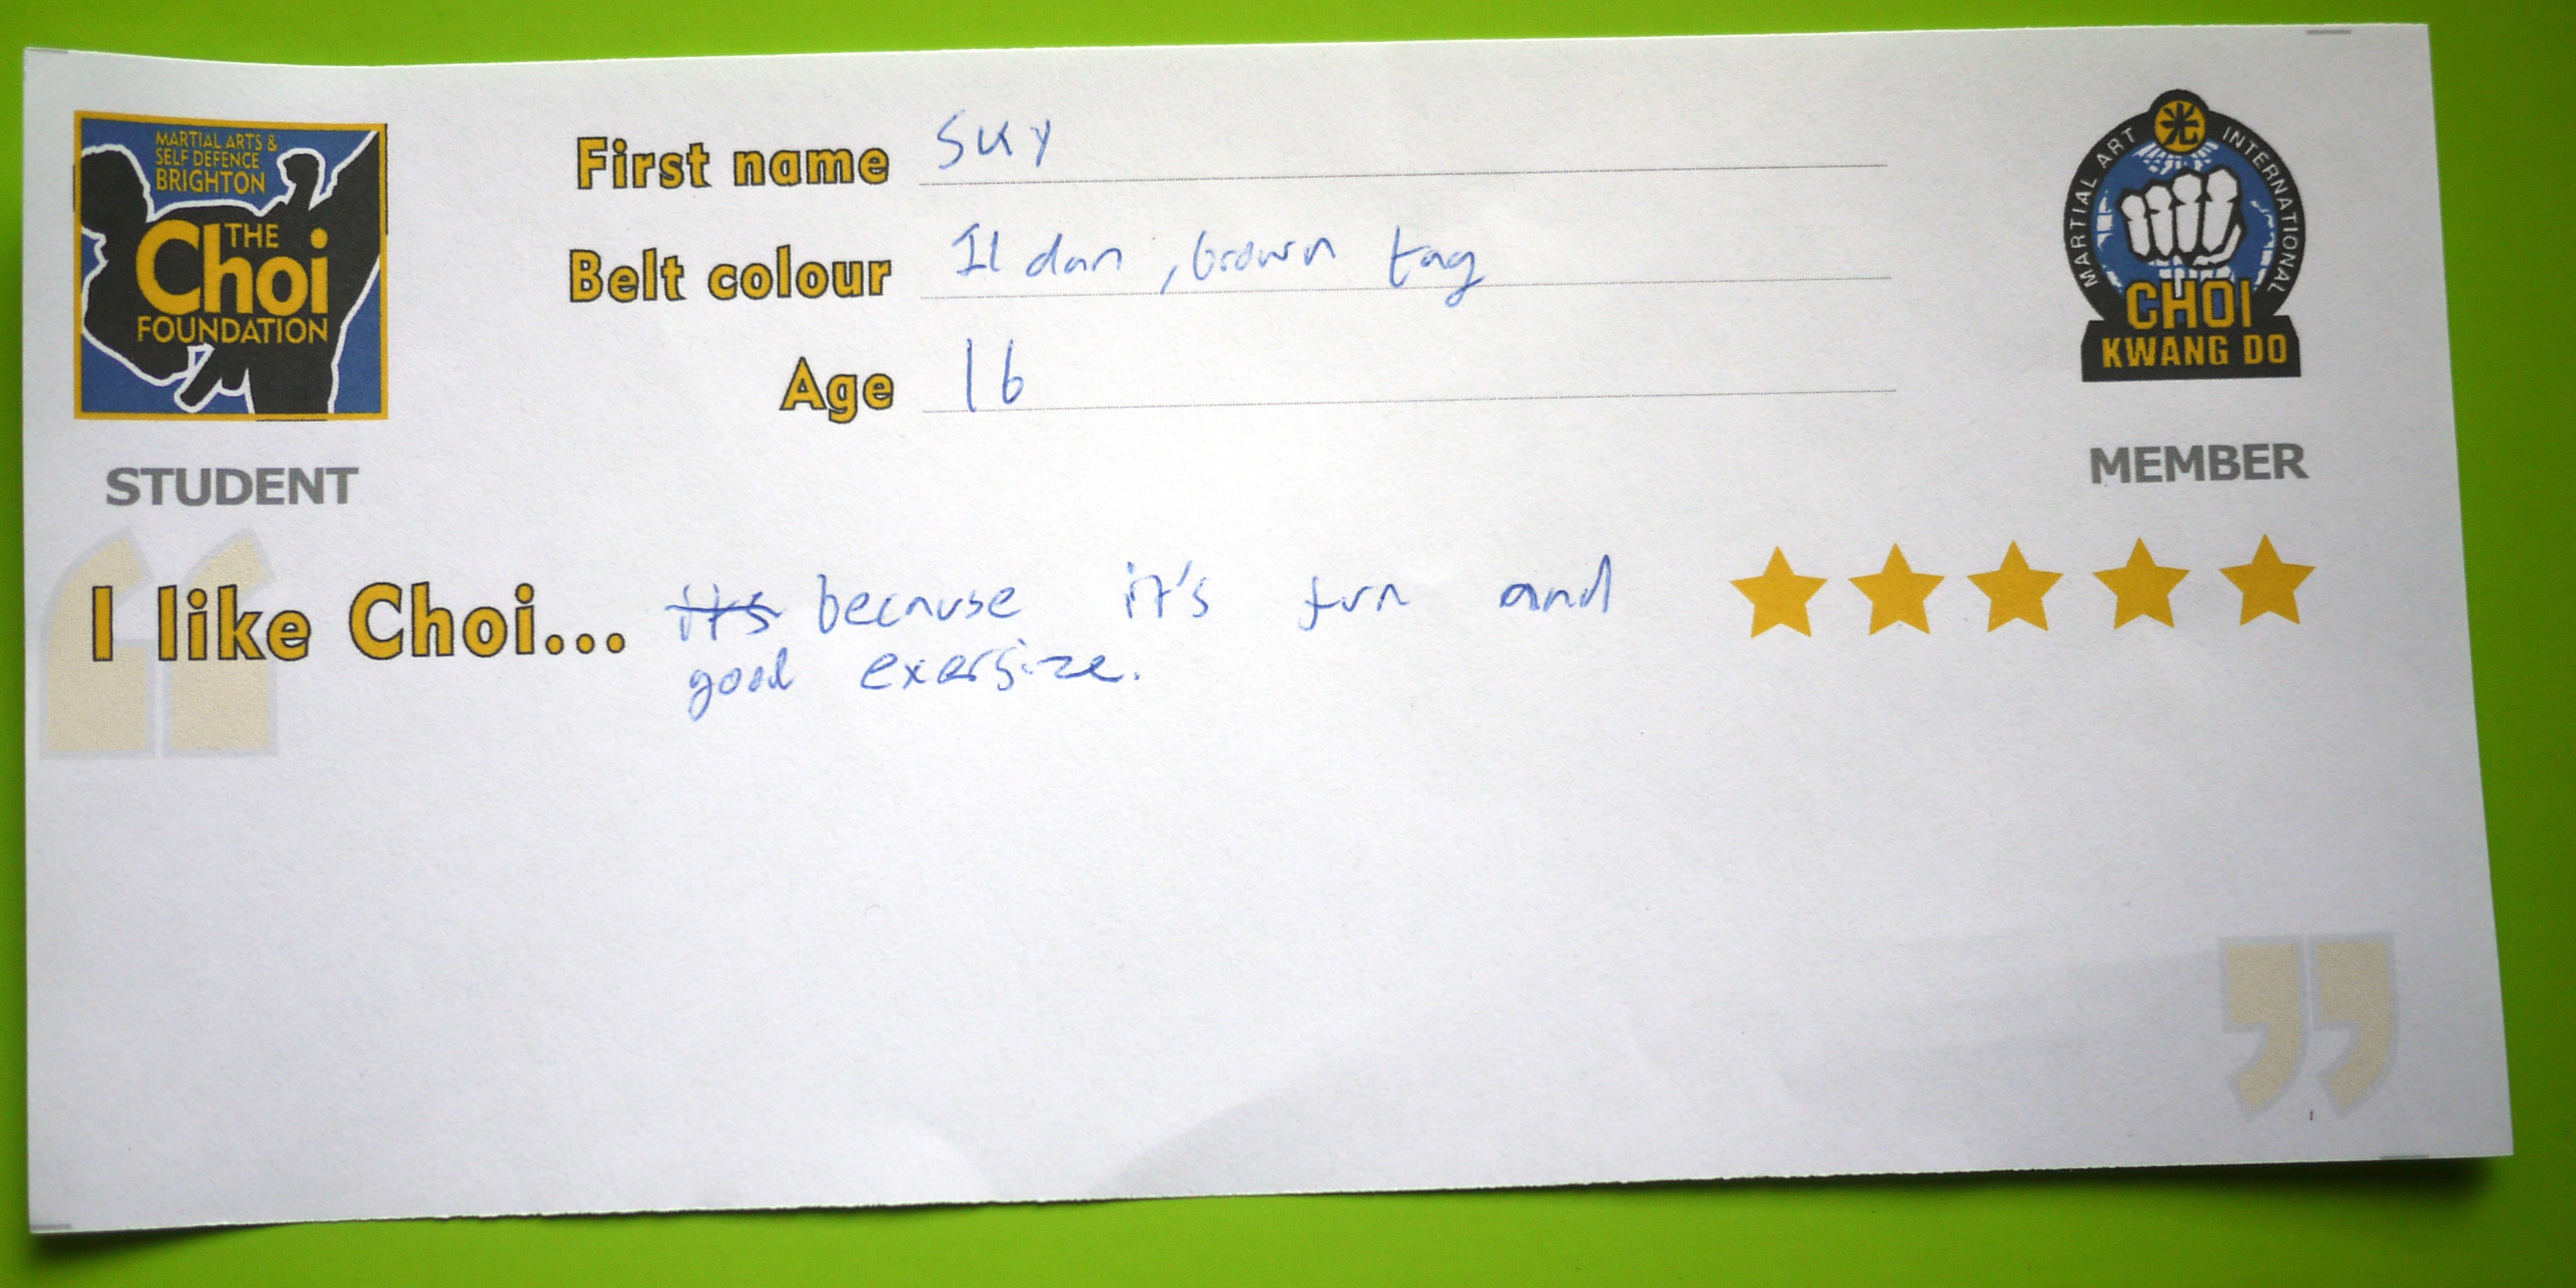 MARTIAL ARTS &
SELF DEFENCE
BRIGHTON
THE
Choi
FOUNDATION
STUDENT
First name Sky
Belt colour Il dan, brown tag
Age 16
MARTIAL ART INTERNATIONAL
CHOI
KWANG DO
MEMBER
“
I like Choi... its because it's fun and
good exersize.
”